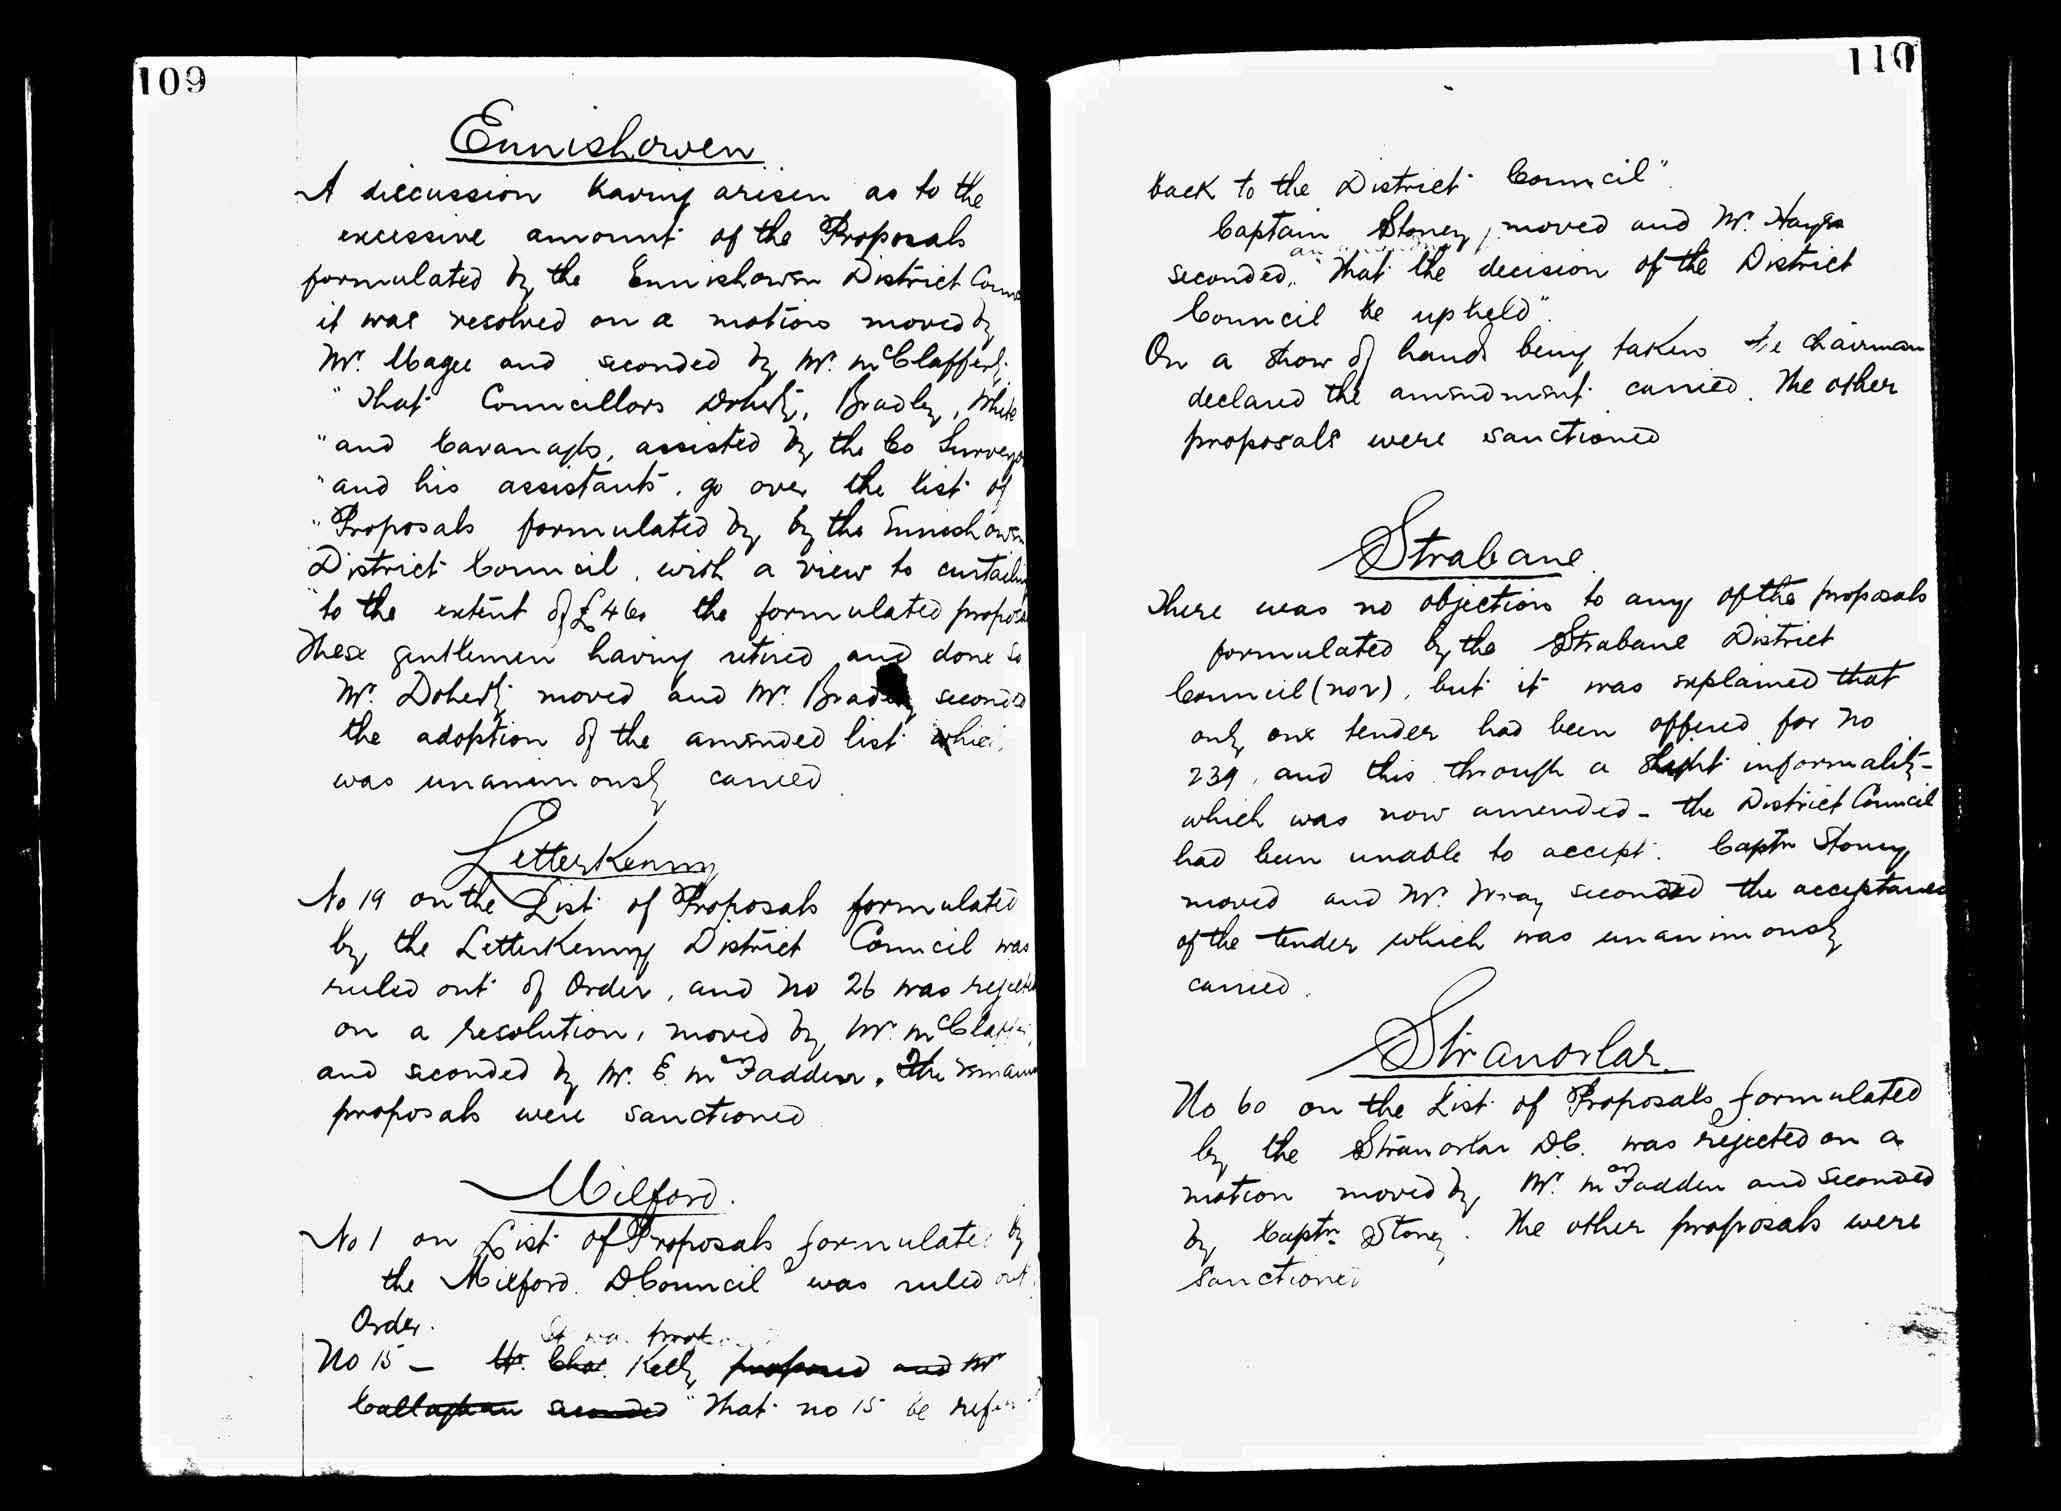 109
Ennishowen
A discussion having arisen as to the
excessive amount of the Proposals
formulated by the Ennishowen District Coun
it was resolved on a motion moved by
Mr. Magee and seconded by Mr. McClafferty
"That Councillors Doherty, Bradley, White
"and Cavanagh, assisted by the Co Surveyo
"and his assistants, go over the list of
"Proposals formulated by by the Ennishowen
District Council, with a view to curtailing
"to the extent of £460 the formulated propos
These gentlemen having retired and done so
Mr. Doherty moved and Mr. Bradley seconded
the adoption of the amended list which
was unanimously carried.
Letterkenny
No 19 on the List of Proposals formulated
by the Letterkenny District Council was
ruled out of Order, and No 26 was rejecte
on a resolution, moved by Mr. McClaffer
and seconded by Mr. E. McFadden. The remain
proposals were sanctioned
Milford.
No 1 on List of Proposals formulated by
the Milford D Council was ruled out
Order.
It was
No 15 - Mr. Chas. Kelly proposed and Mr
Callaghan seconded "That no 15 be refer
110
back to the District Council".
Captain Stoney, moved and Mr. Hayes
an
seconded, "That the decision of the District
Council be upheld".
On a show of hands being taken the chairman
declared the amendment carried. The other
proposals were sanctioned
Strabane
There was no objection to any of the proposals
formulated by the Strabane District
Council (no2), but it was explained that
only one tender had been offered for No
239, and this through a slight informality -
which was now amended - the District Council
had been unable to accept. Captn Stoney
moved and Mr. Wray seconded the acceptance
of the tender which was unanimously
carried.
Stranorlar.
No 60 on the List of Proposals formulated
by the Stranorlar D.C. was rejected on a
motion moved by Mr. McFadden and seconded
by Captn. Stoney. The other proposals were
sanctioned